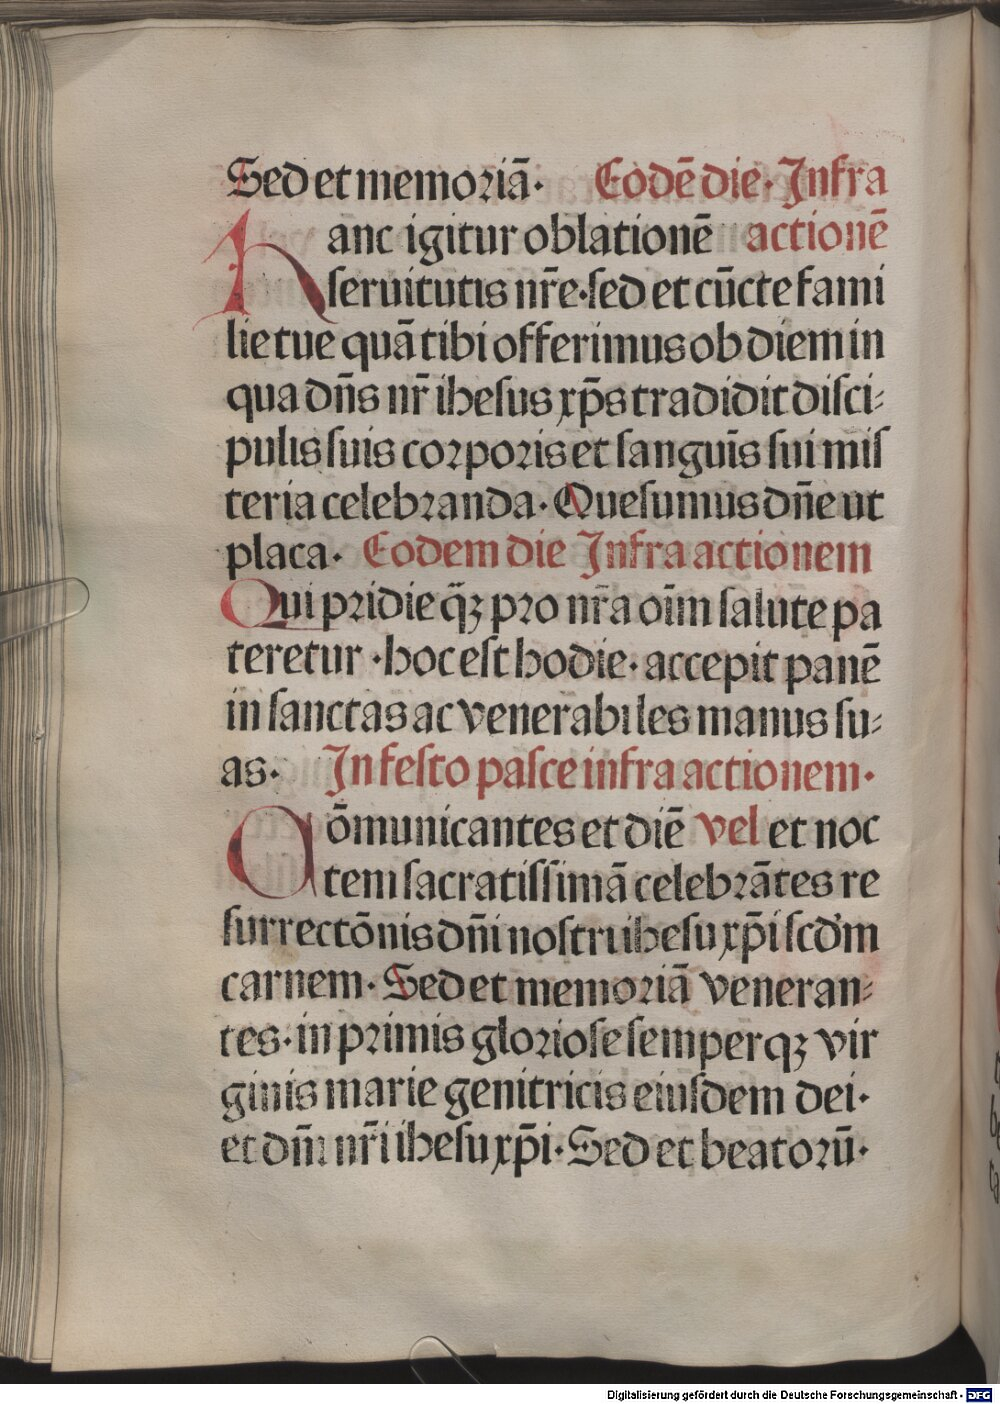 Sed et memoriā· Eodē die· Infra
Hanc igitur oblationē actionē
seruitutis nr̄e·sed et cūcte fami
lie tue quā tibi offerimus ob diem in
qua dn̄s nr̄ ihesus xp̄s tradidit disci-
pulis suis corporis et sanguīs sui mis
teria celebranda· Quesumus dn̄e ut
placa· Eodem die Infra actionem
Qui pridie q̄ꝫ pro nr̄a oīm salute pa
teretur ·hoc est hodie· accepit panē
in sanctas ac venerabiles manus su-
as· In festo pasce infra actionem·
Cōmunicantes et diē vel et noc
tem sacratissīmā celebrātes re
surrectōnis dn̄i nostri ihesu xp̄i scd̄m
carnem· Sed et memoriā veneran-
tes·in primis gloriose semper qꝫ vir
ginis marie genitricis eiusdem dei·
et dn̄i nr̄i ihesu xp̄i· Sed et beatorū·
Digitalisierung gefördert durch die Deutsche Forschungsgemeinschaft - DFG